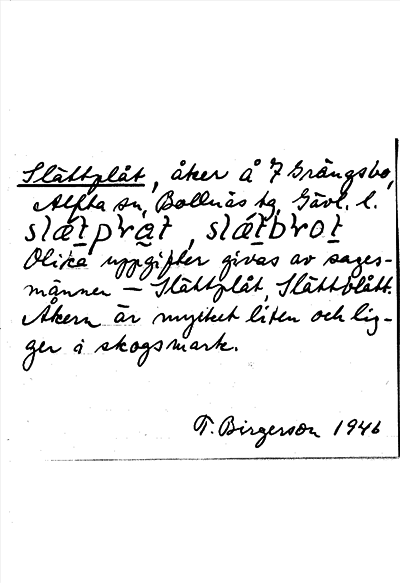 Slättplåt, åker å 7 Grängsbo,
Alfta sn, Bollnäs tg, Gävl. l.
Olika uppgifter givas av sages-
männen — Slättplåt, Slättblått.
Åkern är mycket liten och lig-
ger å skogsmark.
T. Birgerson 1946